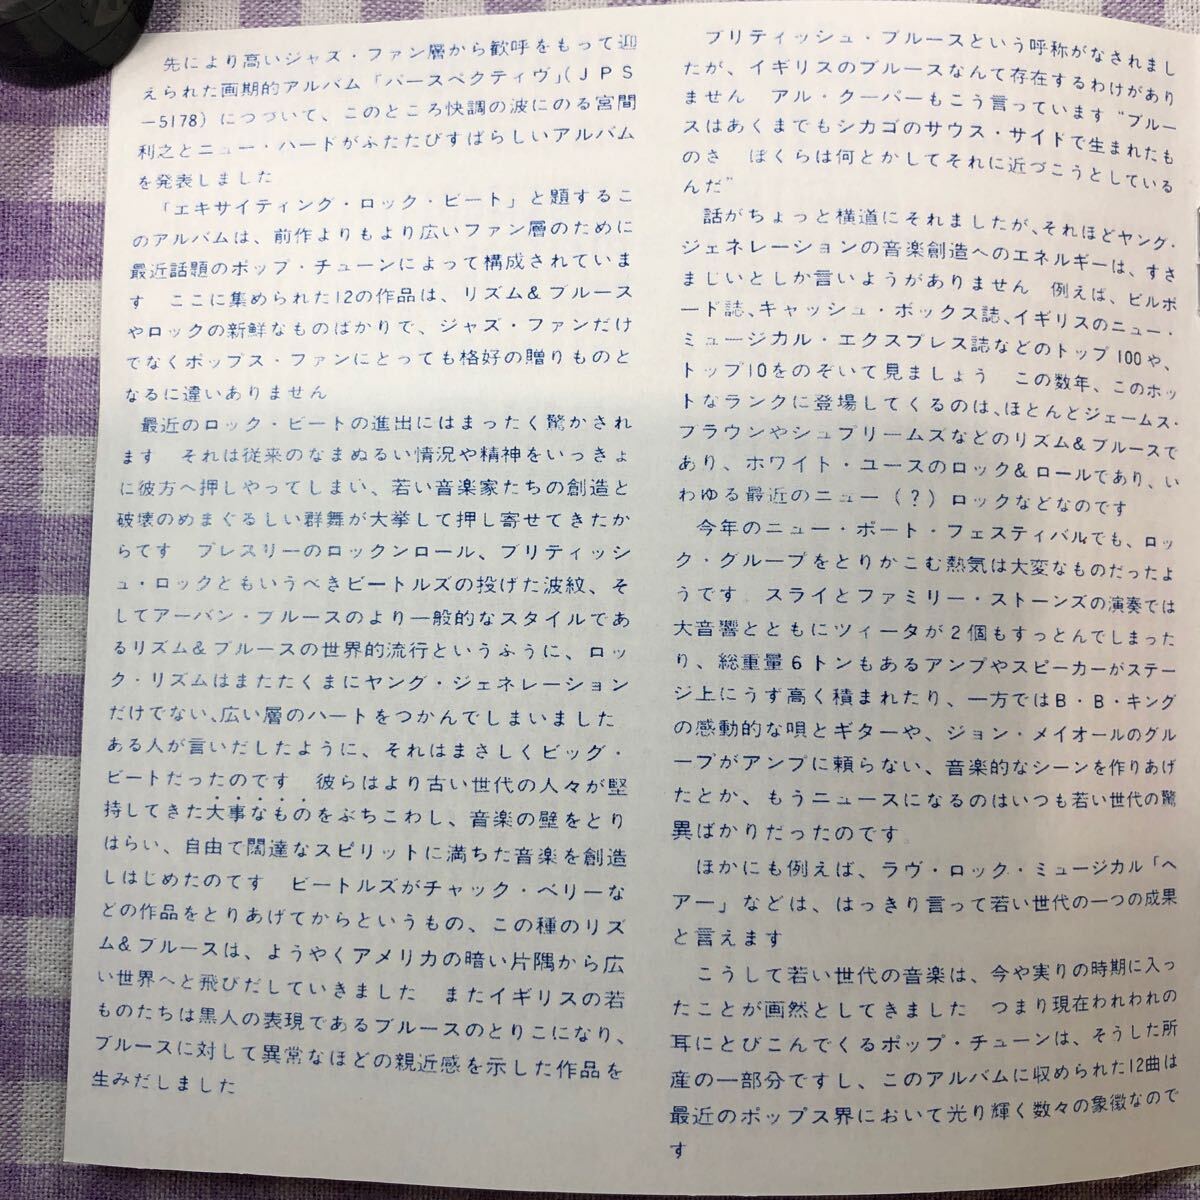 先により高いジャズ・ファン層から歓呼をもって迎
えられた画期的アルバム「パースペクティヴ」(JPS
-5178)につづいて、このところ快調の波にのる宮間
利之とニュー・ハードがふたたびすばらしいアルバム
を発表しました
「エキサイティング・ロック・ビート」と題するこ
のアルバムは、前作よりもより広いファン層のために
最近話題のポップ・チューンによって構成されていま
す　ここに集められた12の作品は、リズム&ブルース
やロックの新鮮なものばかりで、ジャズ・ファンだけ
でなくポップス・ファンにとっても格好の贈りものと
なるに違いありません
最近のロック・ビートの進出にはまったく驚かされ
ます　それは従来のなまぬるい情況や精神をいっきょ
に彼方へ押しやってしまい、若い音楽家たちの創造と
破壊のめまぐるしい群舞が大挙して押し寄せてきたか
らです　プレスリーのロックンロール、ブリティッシ
ュ・ロックともいうべきビートルズの投げた波紋、そ
してアーバン・ブルースのより一般的なスタイルであ
るリズム&ブルースの世界的流行というふうに、ロッ
ク・リズムはまたたくまにヤング・ジェネレーション
だけでない、広い層のハートをつかんでしまいました
ある人が言いだしたように、それはまさしくビッグ・
ビートだったのです　彼らはより古い世代の人々が堅
持してきた大事なものをぶちこわし、音楽の壁をとり
はらい、自由で闊達なスピリットに満ちた音楽を創造
しはじめたのです　ビートルズがチャック・ベリーな
どの作品をとりあげてからというもの、この種のリズ
ム&ブルースは、ようやくアメリカの暗い片隅から広
い世界へと飛びだしていきました　またイギリスの若
ものたちは黒人の表現であるブルースのとりこになり、
ブルースに対して異常なほどの親近感を示した作品を
生みだしました
ブリティッシュ・ブルースという呼称がなされまし
たが、イギリスのブルースなんて存在するわけがあり
ません　アル・クーパーもこう言っています“ブルー
スはあくまでもシカゴのサウス・サイドで生まれたも
のさ　ぼくらは何とかしてそれに近づこうとしている
んだ”
話がちょっと横道にそれましたが、それほどヤング・
ジェネレーションの音楽創造へのエネルギーは、すさ
まじいとしか言いようがありません　例えば、ビルボ
ード誌、キャッシュ・ボックス誌、イギリスのニュー・
ミュージカル・エクスプレス誌などのトップ100や、
トップ10をのぞいて見ましょう　この数年、このホッ
トなランクに登場してくるのは、ほとんどジェームス・
ブラウンやシュプリームズなどのリズム&ブルースで
あり、ホワイト・ユースのロック&ロールであり、い
わゆる最近のニュー(？)ロックなどなのです
今年のニュー・ポート・フェスティバルでも、ロッ
ク・グループをとりかこむ熱気は大変なものだったよ
うです　スライとファミリー・ストーンズの演奏では
大音響とともにツィータが2個もすっとんでしまった
り、総重量6トンもあるアンプやスピーカーがステー
ジ上にうず高く積まれたり、一方ではB・B・キング
の感動的な唄とギターや、ジョン・メイオールのグル
ープがアンプに頼らない、音楽的なシーンを作りあげ
たとか、もうニュースになるのはいつも若い世代の驚
異ばかりだったのです。
ほかにも例えば、ラヴ・ロック・ミュージカル「ヘ
アー」などは、はっきり言って若い世代の一つの成果
と言えます
こうして若い世代の音楽は、今や実りの時期に入っ
たことが画然としてきました　つまり現在われわれの
耳にとびこんでくるポップ・チューンは、そうした所
産の一部分ですし、このアルバムに収められた12曲は
最近のポップス界において光り輝く数々の象徴なので
す